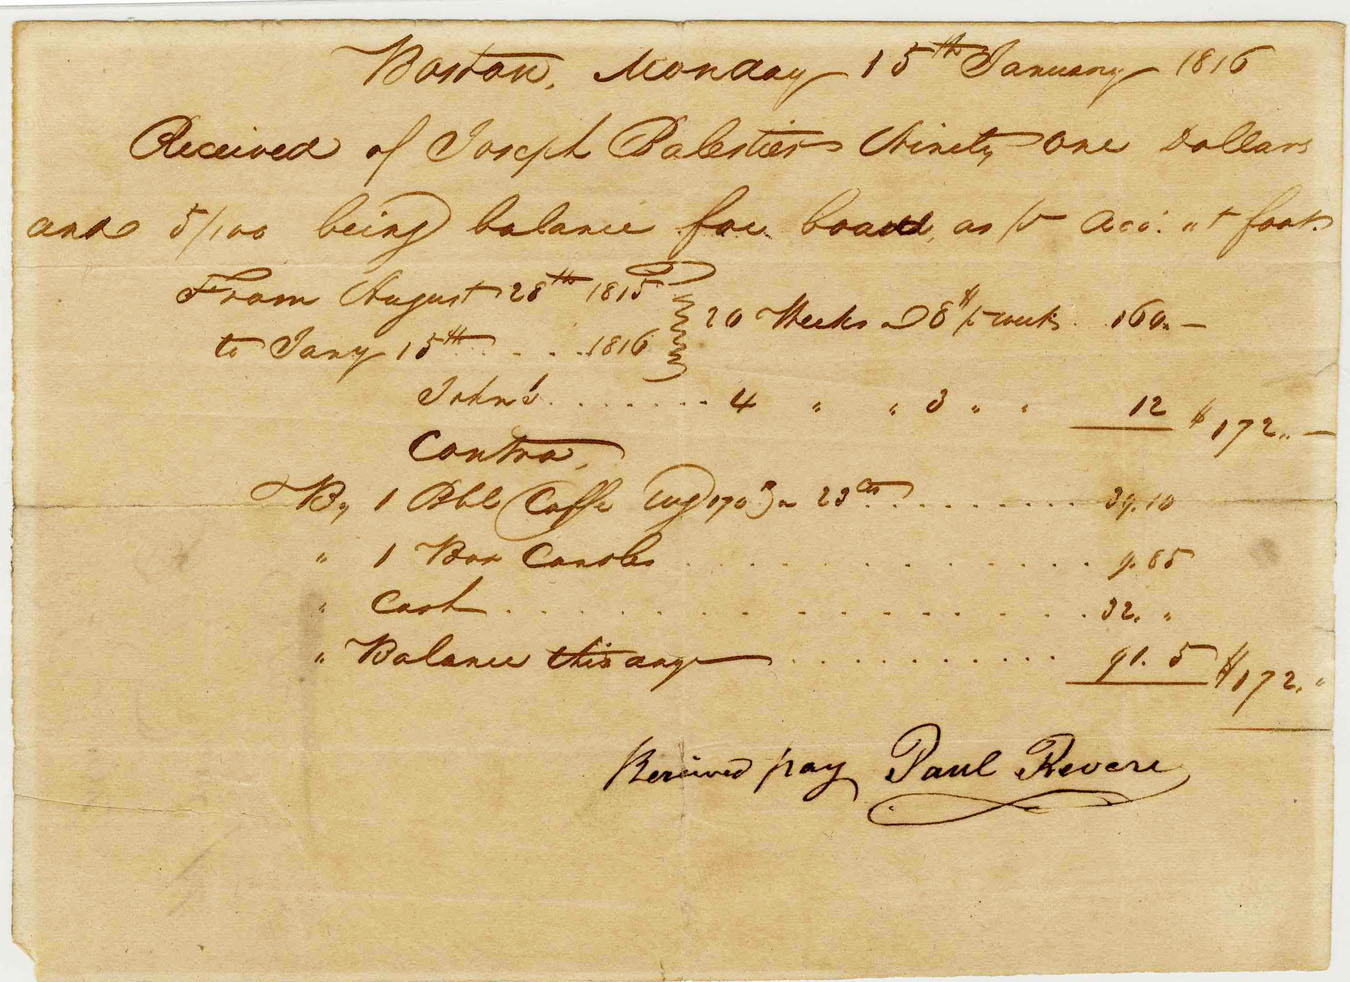 Boston, Monday 15th January 1816
Received of Joseph Balestier Ninety one Dollars
and 5/100 being balance for board, as pr Acc't at foot.
From August 28th 1815
to Jany 15th . . . . 1816 20 Weeks a 8$ pr week . 160..—
John's . . . . . . . 4 " " 3 " " 12 $172..—
Contra,
By 1 Bbl Coffe Wg 170 a 23cts . . . . . . . . . 39.10
" 1 Box Candles . . . . . . . . . . 9.85
" Cash . . . . . . . . . . . . . . . . 32. "
" Balance this day . . . . . . . . . . . 91.5 $172. "
Received pay Paul Revere